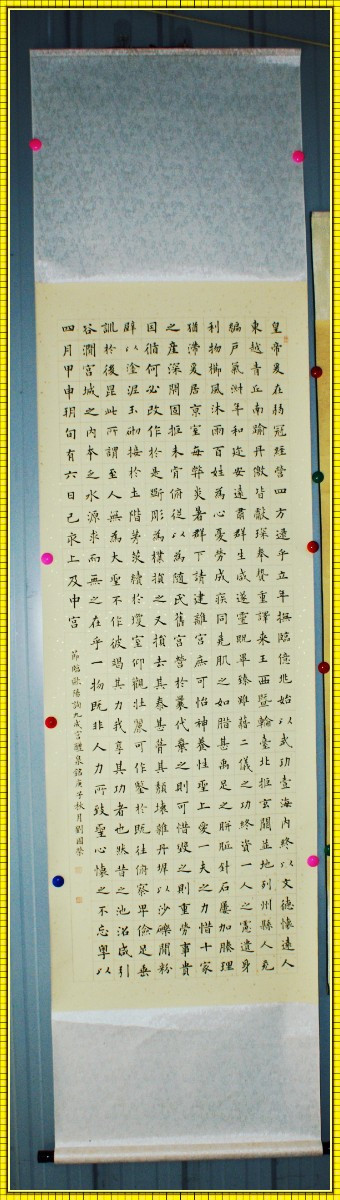 皇帝爰在弱冠經營四方逮乎立年撫臨億兆始以武功壹海內終以文德懷遠人
東越青丘南踰丹徼皆獻琛奉贄重譯来王西暨輪臺北拒玄闕並地列州縣人充
編戶氣淑年和迩安遠肅群生咸遂靈貺畢臻雖藉二儀之功終資一人之慮遺身
利物櫛風沐雨百姓為心憂勞成疾同堯肌之如腊甚禹足之胼胝針石屢加腠理
猶滯爰居京室每弊炎暑群下請建離宮庶可怡神養性聖上愛一夫之力惜十家
之産深閉固拒未肯俯從以為隨氏舊宮營於曩代棄之則可惜毀之則重勞事貴
因循何必改作於是斲彫為樸損之又損去其泰甚葺其頹壞雜丹墀以沙礫間粉
壁以塗泥玉砌接於土階茅茨續於瓊室仰觀壯麗可作鑒於既往俯察卑儉足垂
訓於後昆此所謂至人無為大聖不作彼竭其力我享其功者也然昔之池沼咸引
谷澗宮城之內本乏水源求而無之在乎一物既非人力所致聖心懷之不忘粵以
四月甲申朔旬有六日己亥上及中宮
節臨歐陽詢九成宮醴泉銘庚子秋月劉國榮